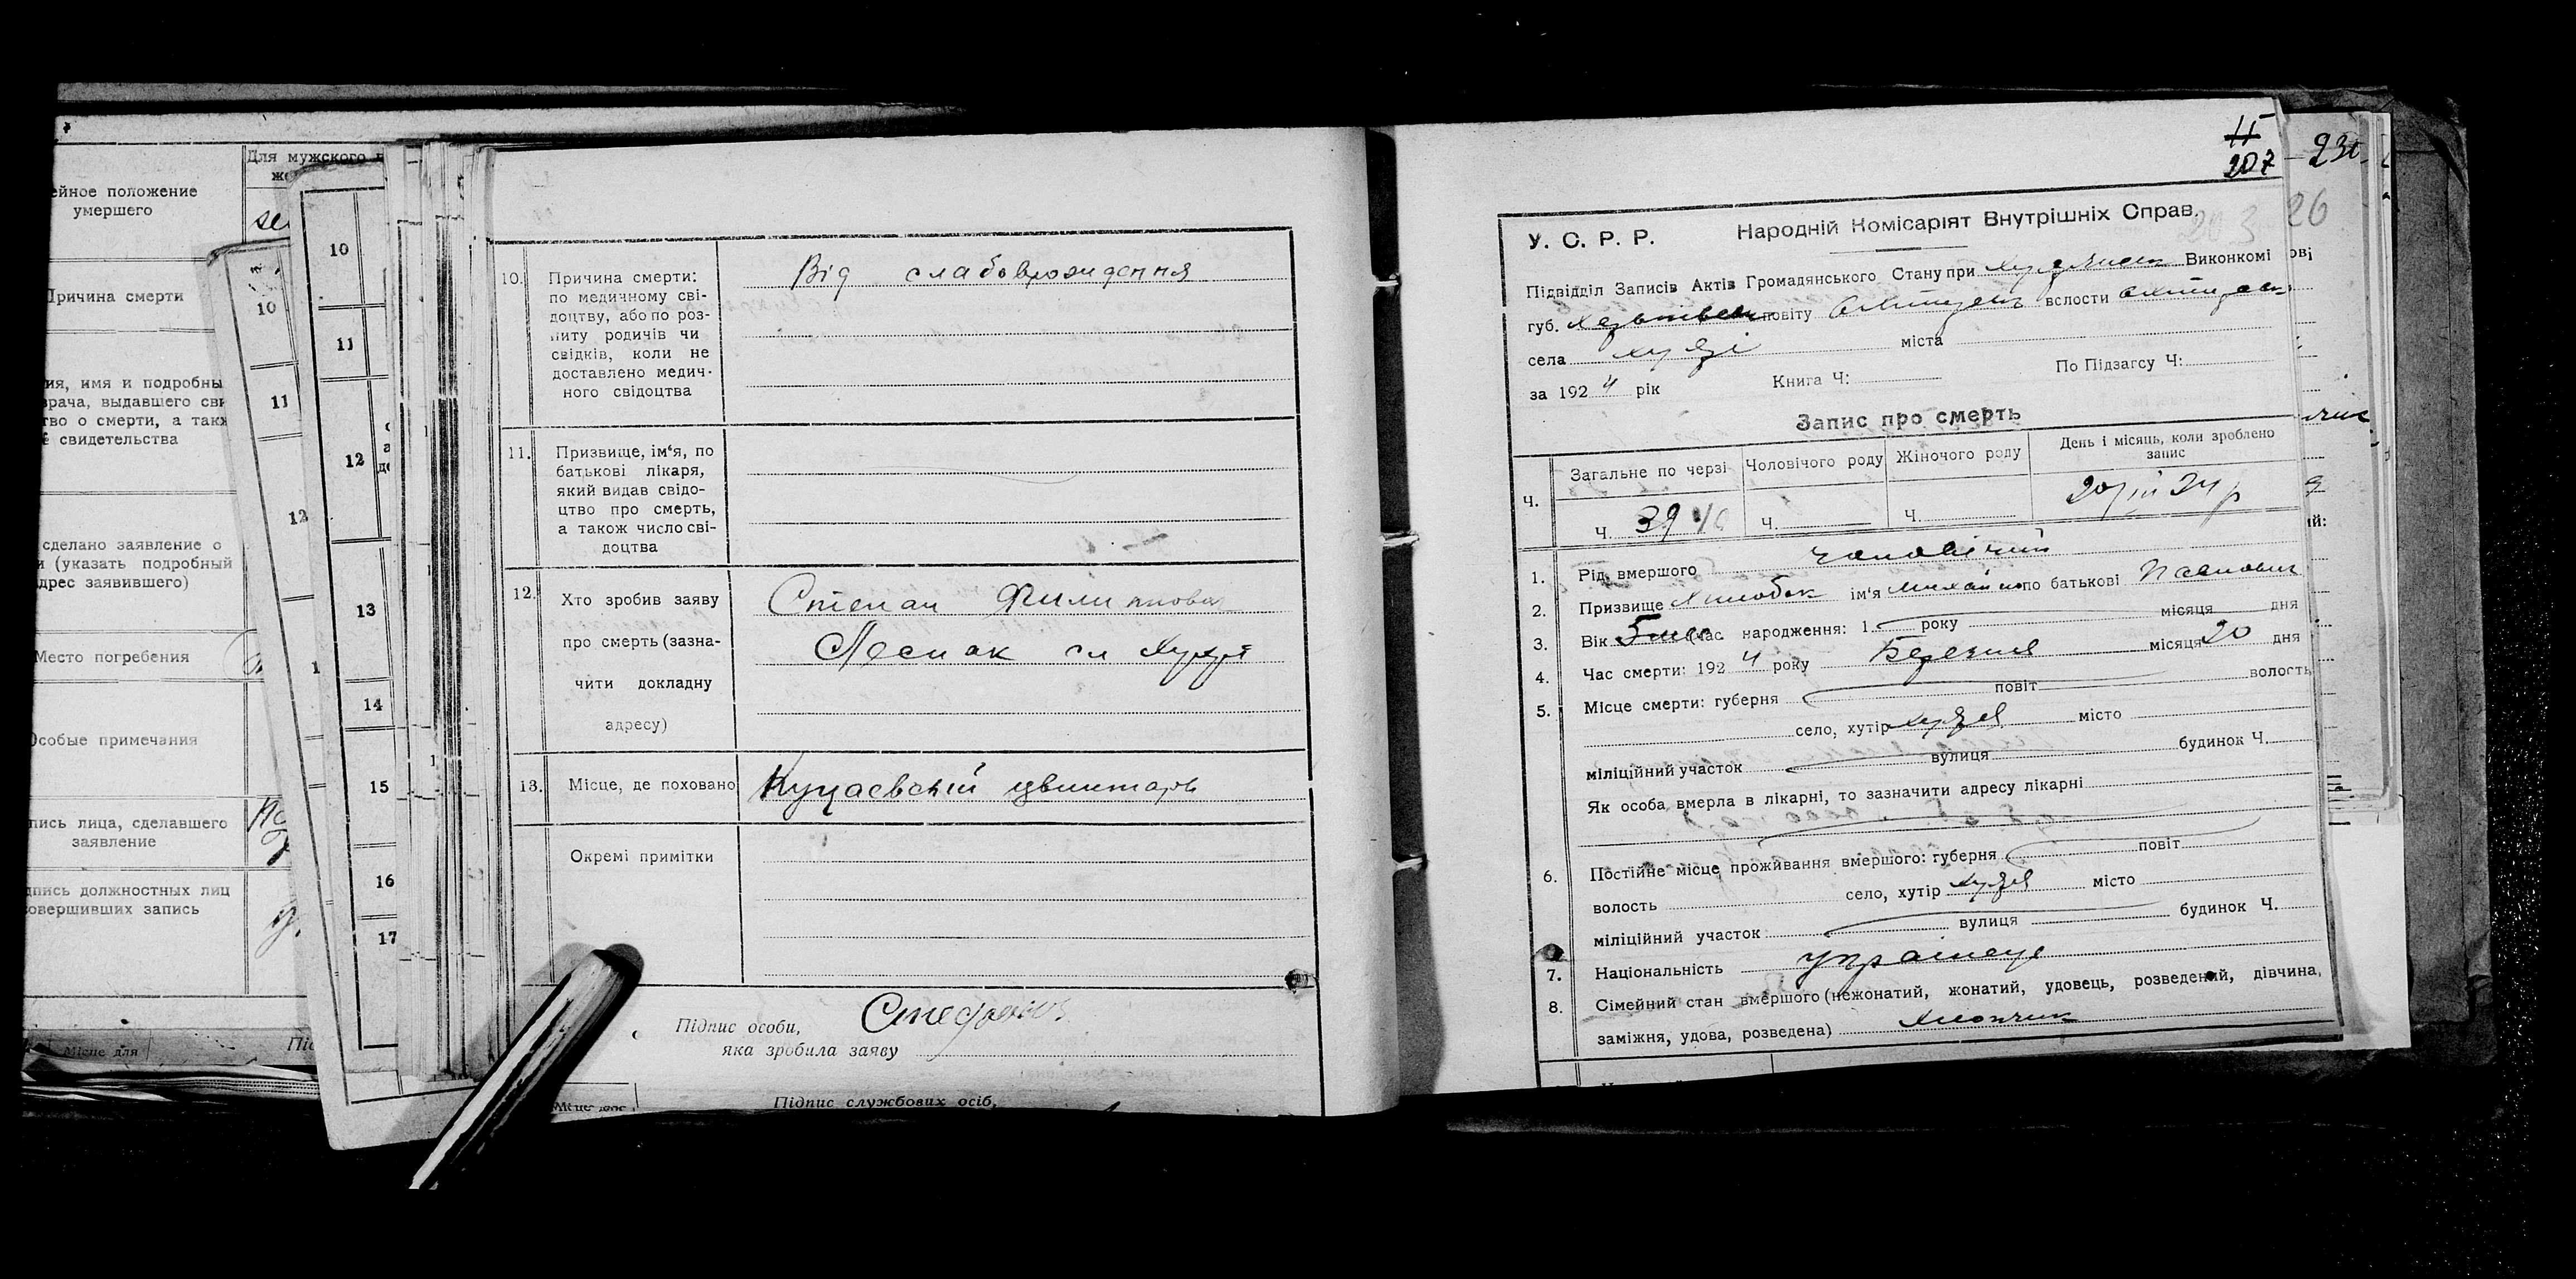 Для мужского п
ейное положение
умершего
Причина смерти
ия, имя и подробны
врача, выдавшего сви
тво о смерти, а такж
е свидетельства
сделано заявление о
и (указать подробный
дрес заявившего)
Место погребения
Особые примечания
пись лица, сделавшего
заявление
дпись должностных лиц
совершивших запись
Місце для
10
11
12
10
11
12
13
14
15
16
17
10. Причина смерти:
по медичному сві-
доцтву, або по роз-
питу родичів чи
свідків, коли не
доставлено медич-
ного свідоцтва
Від слабоврождення
11. Призвище, ім'я, по
батькові лікаря,
який видав свідо-
цтво про смерть,
а також число сві-
доцтва
12. Хто зробив заяву
про смерть (зазна-
чити докладну
адресу)
Степан Филиппович
Лесняк сл Хухря
13. Місце, де поховано
цвинтарь
Окремі примітки
Підпис особи,
яка зробила заяву
Підпис службових осіб,
207
230
26
У. С. Р. Р. Народній Комісаріят Внутрішніх Справ.
Підвідділ Записів Актів Громадянського Стану при Виконкомі
губ. повіту вслости
села міста
за 1924 рік Книга Ч: По Підзагсу Ч:
Запис про смерть
Ч. Загальне по черзі Чоловічого роду Жіночого роду День і місяць, коли зроблено
запис
Ч. 39 Ч. Ч. 20/III 24 р
1. Рід вмершого чоловічий
2. Призвище ім'я Михайло по батькові Павлович
3. Вік 5 час народження: 1 року місяця дня
4. Час смерти: 1924 року Березня місяця 20 дня
5. Місце смерти: губерня повіт волость
село, хутір Хухря місто
міліційний участок вулиця будинок Ч.
Як особа вмерла в лікарні, то зазначити адресу лікарні
6. Постійне місце проживання вмершого: губерня повіт
волость село, хутір Хухря місто
міліційний участок вулиця будинок Ч.
7. Національність українец
8. Сімейний стан вмершого (нежонатий, жонатий, удовець, розведений, дівчина,
заміжня, удова, розведена) Хлопчик